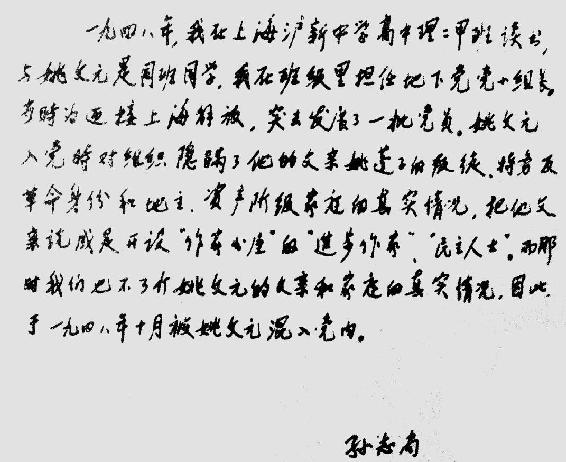 一九四八年，我在上海沪新中学高中理二甲班读书，
与姚文元是同班同学，我在班级里担任地下党党小组长。
当时为迎接上海解放，突击发展了一批党员。姚文元
入党时对组织隐瞒了他的父亲姚蓬子的叛徒、特务反
革命身份和地主、资产阶级家庭的真实情况，把他父
亲说成是开设“作家书屋”的“进步作家”、“民主人士”。而那
时我们也不了介姚文元的父亲和家庭的真实情况，因此，
于一九四八年十月被姚文元混入党内。
孙志尚